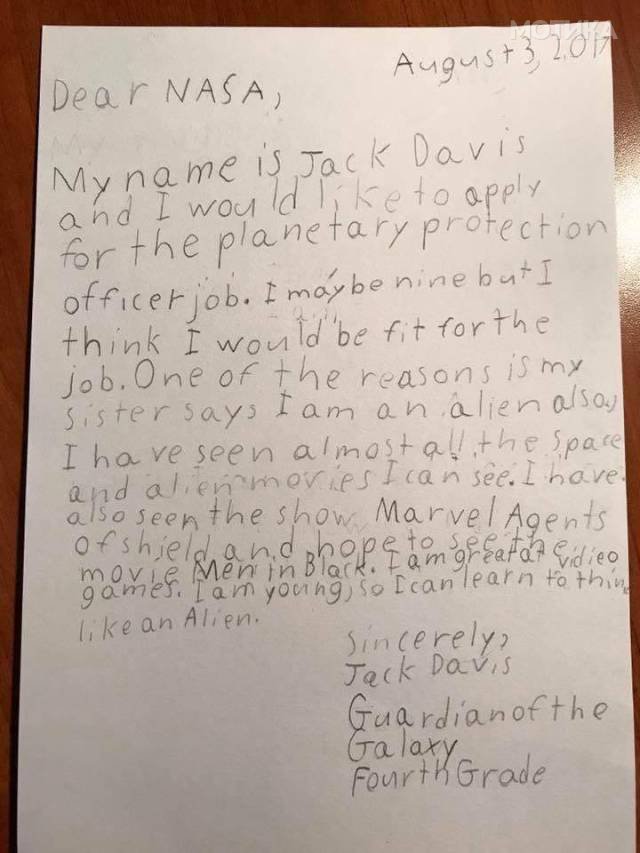 МОТИКА
August 3, 2017
Dear NASA,
My name is Jack Davis
and I would like to apply
for the planetary protection
officer job. I may be nine but I
think I would be fit for the
job. One of the reasons is my
sister says I am an alien also,
I have seen almost all the space
and alien movies I can see. I have
also seen the show Marvel Agents
of shield and hope to see the
movie Men in Black. I am great at vidieo
games. I am young, so I can learn to think
like an Alien.
Sincerely,
Jack Davis
Guardian of the
Galaxy
Fourth Grade